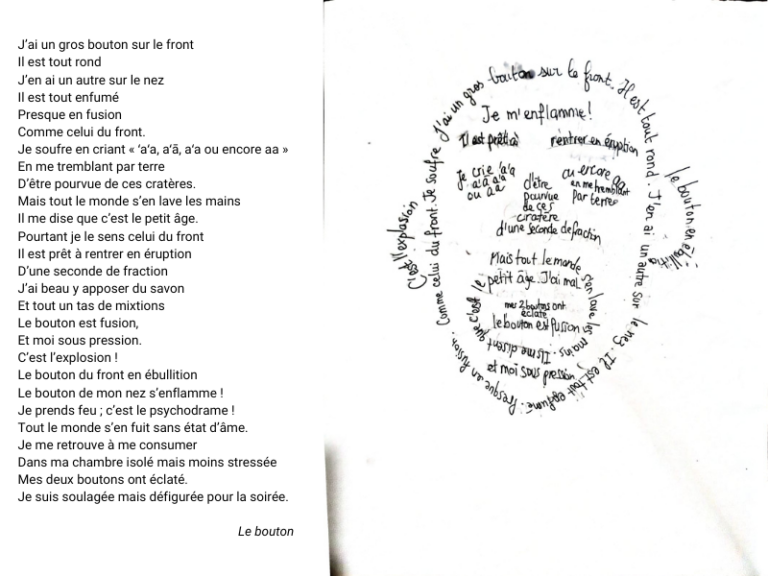 J'ai un gros bouton sur le front
Il est tout rond
J'en ai un autre sur le nez
Il est tout enfumé
Presque en fusion
Comme celui du front.
Je souffre en criant « 'a'a, a'ā, a'a ou encore aa »
En me tremblant par terre
D'être pourvue de ces cratères.
Mais tout le monde s'en lave les mains
Il me dise que c'est le petit âge.
Pourtant je le sens celui du front
Il est prêt à rentrer en éruption
D'une seconde de fraction
J'ai beau y apposer du savon
Et tout un tas de mixtions
Le bouton est fusion,
Et moi sous pression.
C'est l'explosion !
Le bouton du front en ébullition
Le bouton de mon nez s'enflamme !
Je prends feu ; c'est le psychodrame !
Tout le monde s'en fuit sans état d'âme.
Je me retrouve à me consumer
Dans ma chambre isolé mais moins stressée
Mes deux boutons ont éclaté.
Je suis soulagée mais défigurée pour la soirée.
Le bouton
J'ai un gros bouton sur le front. Il est tout rond. J'en ai un autre sur le nez. Il est tout enfumé. Presque en fusion. Comme celui du front. Je souffre
Je m'enflamme!
Il est prêt à rentrer en éruption
Je crie 'a'a
a'ā a'a
ou aa
d'être
pourvue
de ces
cratère
ou encore aa
en me tremblant
par terre
d'une seconde de fraction
Mais tout le monde s'en lave les mains. Ils me disent que c'est le petit âge. J'ai mal
mes 2 boutons ont
éclaté
le bouton est fusion
et moi sous pression
C'est l'explosion
le bouton en ébullitio